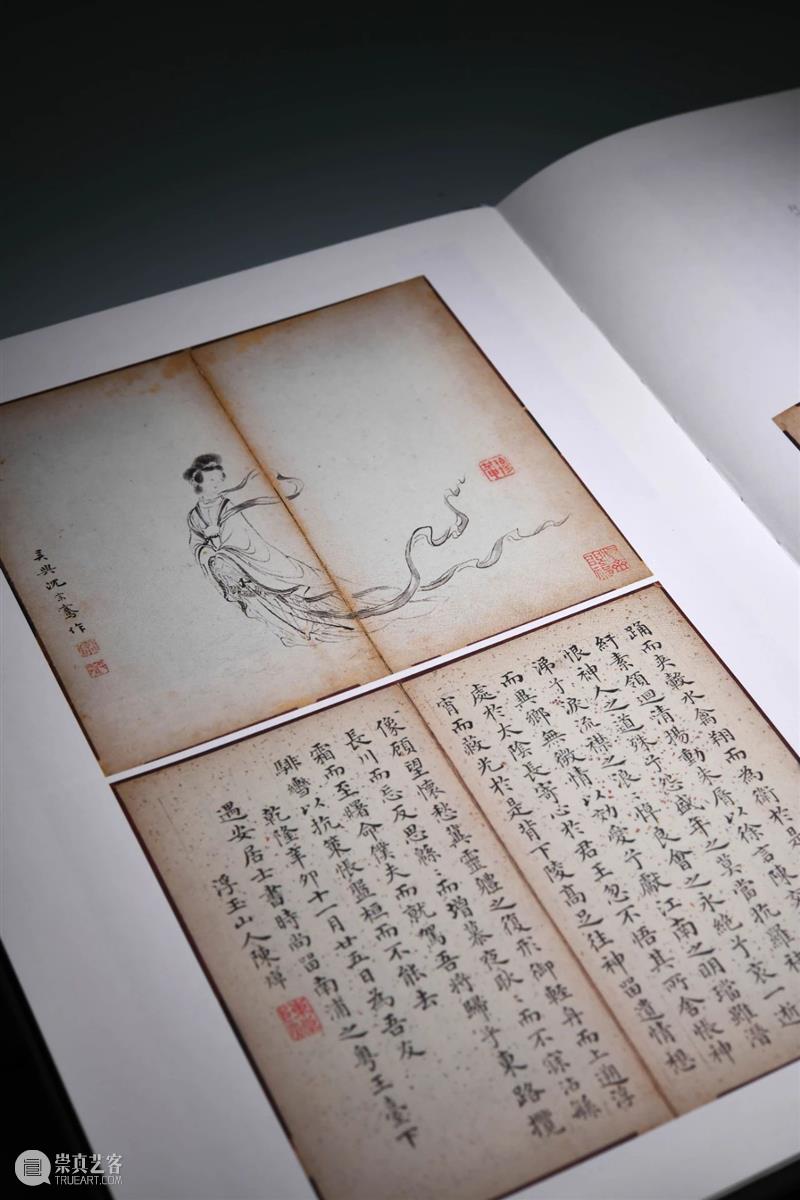 吳興沈宗騫作
踊而夾轂水禽翔而為衛於是
紆素領迴清揚動朱脣以徐言陳交
恨人神之道殊兮怨盛年之莫當抗羅袂
涕兮淚流襟之浪〻悼良會之永絕兮哀一逝
而異鄉無微情以効愛兮獻江南之明璫雖潛
處於太陰長寄心於君王忽不悟其所舍悵神
宵而蔽光於是背下陵高足往神留遺情想
像顧望懷愁冀靈體之復形御輕舟而上遡浮
長川而忘反思緜〻而增慕夜耿〻而不寐沾緐
霜而至曙命僕夫而就駕吾將歸乎東路攬
騑轡以抗策悵盤桓而不能去
乾隆辛卯十一月廿五日為吾友
遇安居士書時尚留南浦之粵王臺下
浮玉山人陳焯
崇真艺客
TRUEART.COM